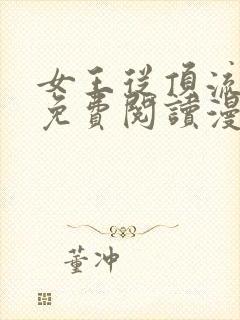 女王從頂流
免費閱讀漫
董冲